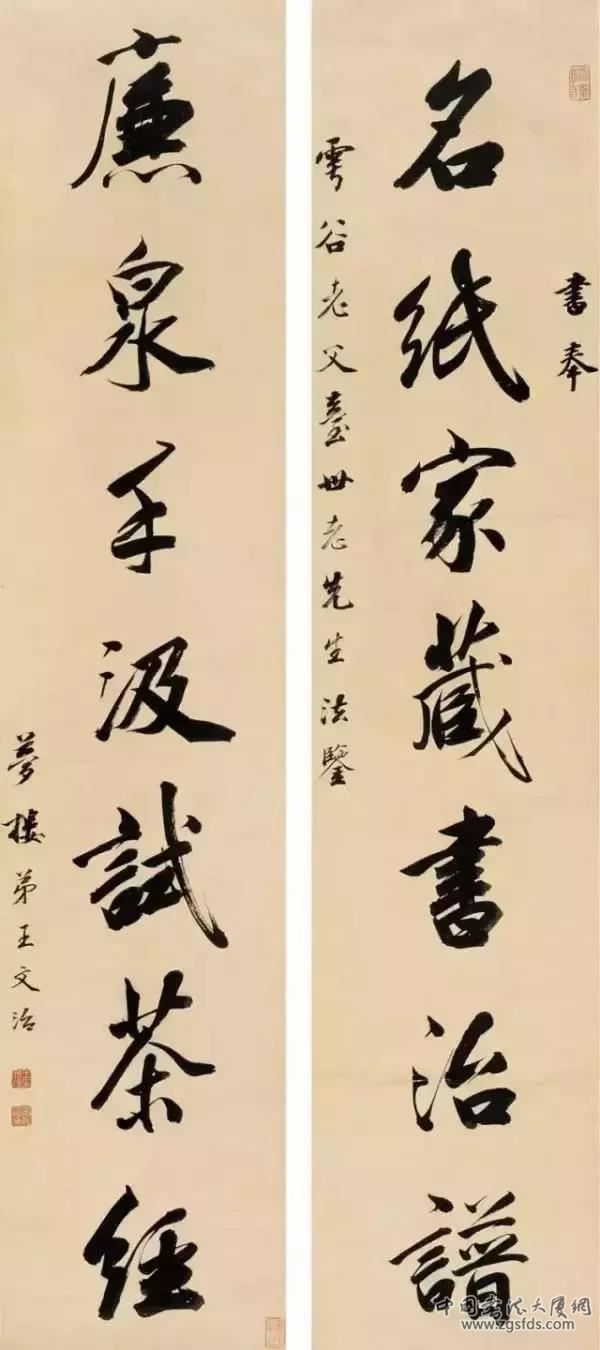 書奉
名紙家藏書治譜
雩谷老父臺世老先生法鑒
廉泉手汲試茶經
夢樓弟王文治
中国書法大厦網
www.zgsfds.com